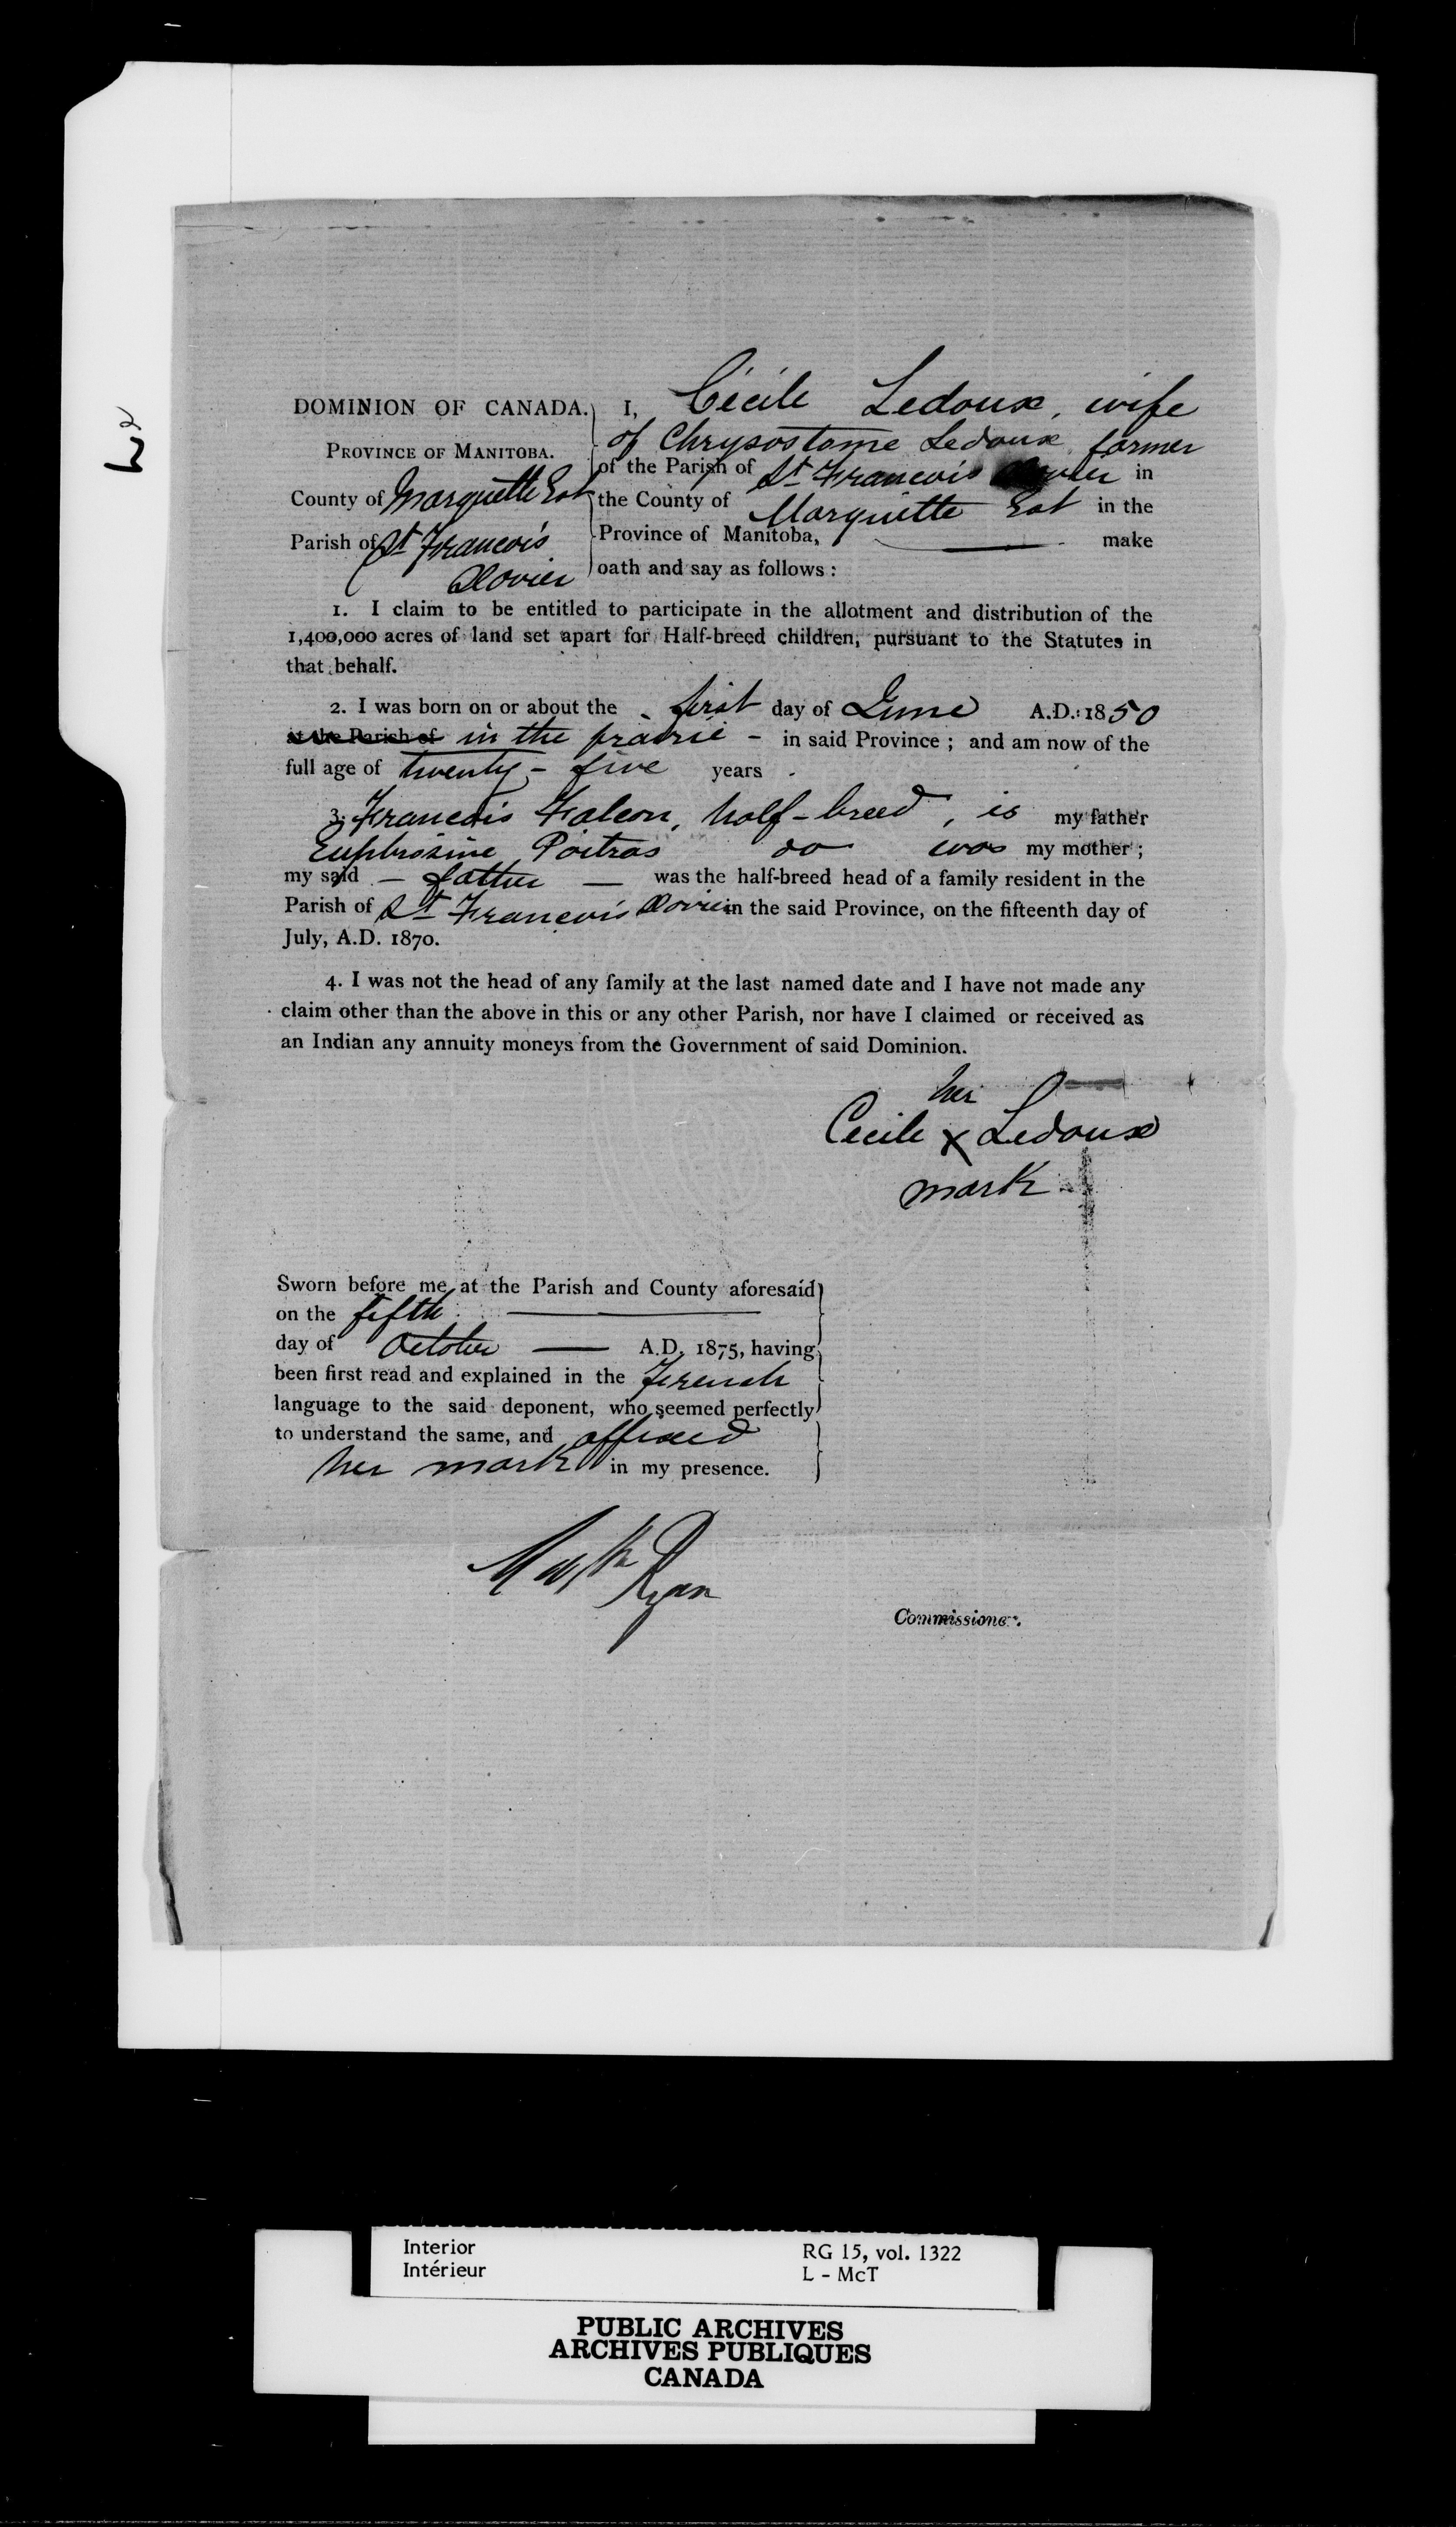 DOMINION OF CANADA.
PROVINCE OF MANITOBA.
County of Marquette Est
Parish of St Francois
Xavier
I, Cécile Ledoux, wife
of Chrysostome Ledoux farmer
of the Parish of St Francois Xavier in
the County of Marquette Est in the
Province of Manitoba, — make
oath and say as follows :
1. I claim to be entitled to participate in the allotment and distribution of the
1,400,000 acres of land set apart for Half-breed children, pursuant to the Statutes in
that behalf.
2. I was born on or about the first day of June A.D.: 1850
at the Parish of in the prairie - in said Province ; and am now of the
full age of twenty-five years
3. Francois Falcon, half-breed, is my father
Euphrosine Poitras do was my mother ;
my said — father — was the half-breed head of a family resident in the
Parish of St Francois Xavier in the said Province, on the fifteenth day of
July, A.D. 1870.
4. I was not the head of any family at the last named date and I have not made any
claim other than the above in this or any other Parish, nor have I claimed or received as
an Indian any annuity moneys from the Government of said Dominion.
her
Cecile X Ledoux
mark
Sworn before me at the Parish and County aforesaid
on the fifth —
day of October — A.D. 1875, having
been first read and explained in the French
language to the said deponent, who seemed perfectly
to understand the same, and affixed
her mark in my presence.
Ryan
Commissioner.
Interior
Intérieur
RG 15, vol. 1322
L - McT
PUBLIC ARCHIVES
ARCHIVES PUBLIQUES
CANADA